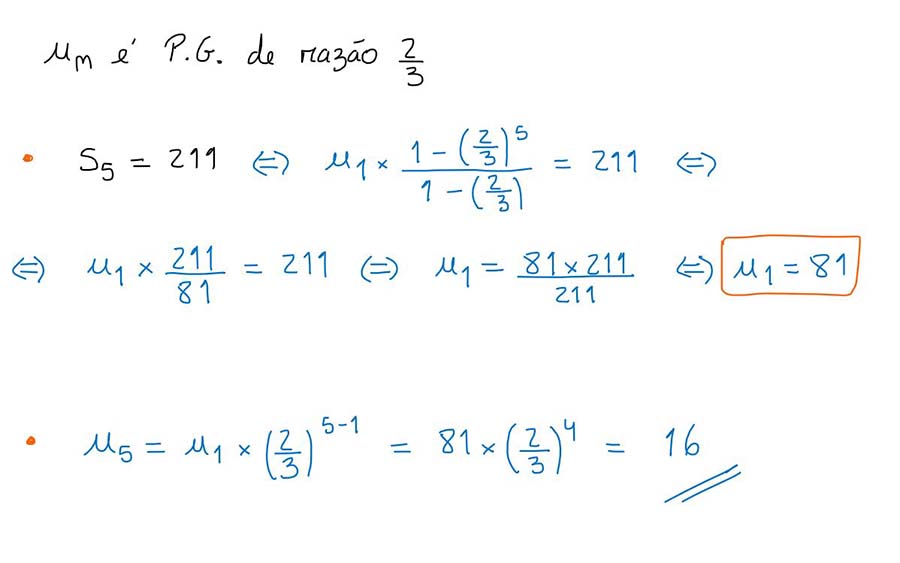 un é P.G. de razão 2/3
• S5 = 211 ⇔ u1 × (1 - (2/3)^5)/(1 - (2/3)) = 211 ⇔
⇔ u1 × 211/81 = 211 ⇔ u1 = (81 × 211)/211 ⇔ u1 = 81
• u5 = u1 × (2/3)^(5-1) = 81 × (2/3)^4 = 16